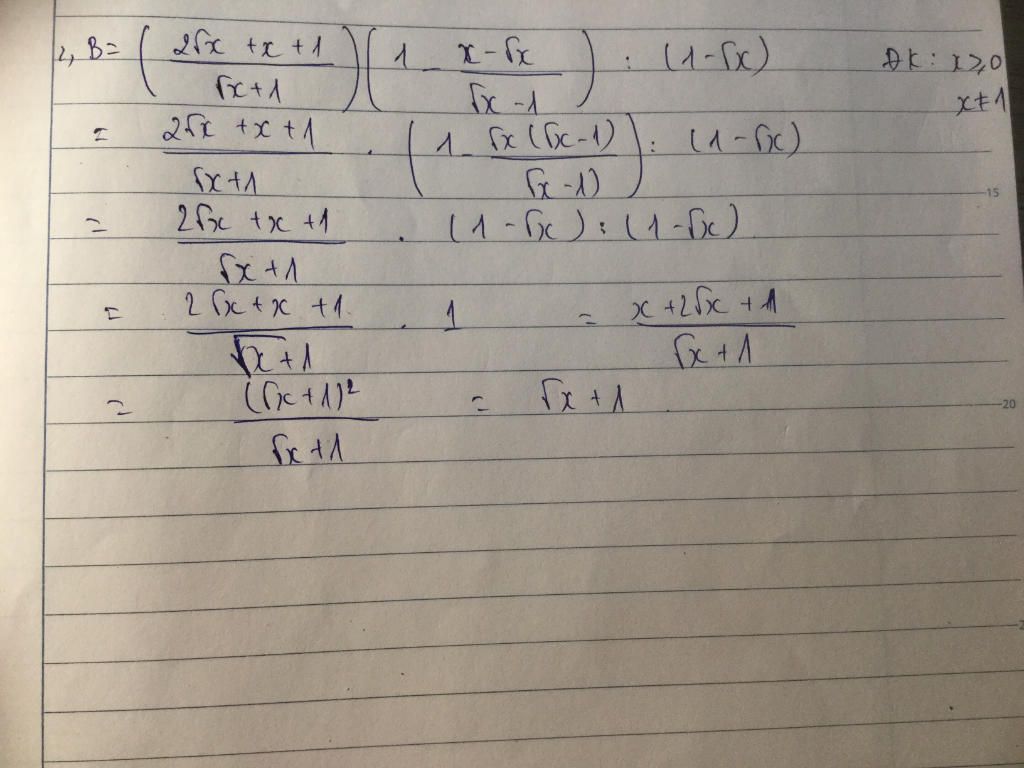 2, B = ( (2√x + x + 1) / (√x + 1) ) ( 1 - (x - √x) / (√x - 1) ) : (1 - √x) ĐK : x ≥ 0
x ≠ 1
= (2√x + x + 1) / (√x + 1) . ( 1 - √x (√x - 1) / (√x - 1) ) : (1 - √x)
15
= (2√x + x + 1) / (√x + 1) . (1 - √x) : (1 - √x)
= (2√x + x + 1) / (√x + 1) . 1 = (x + 2√x + 1) / (√x + 1)
= (√x + 1)² / (√x + 1) = √x + 1
20